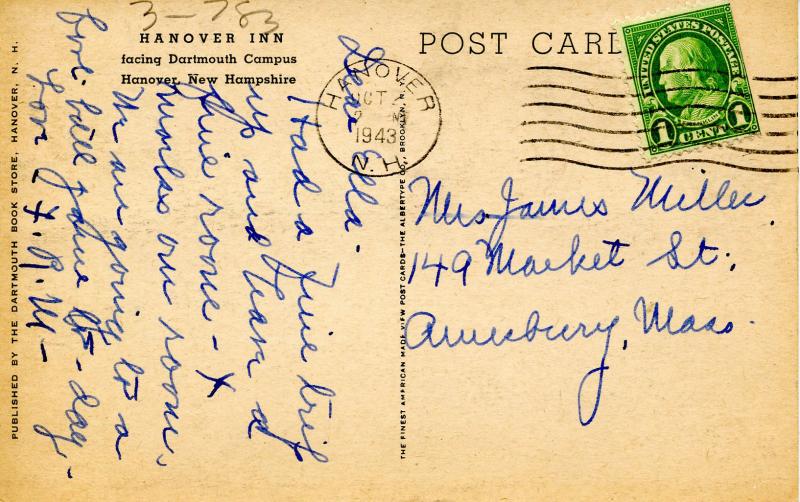 3-783
HANOVER INN
facing Dartmouth Campus
Hanover, New Hampshire
POST CARD
HANOVER
OCT
1943
N.H.
UNITED STATES POSTAGE
FRANKLIN
1 CENT 1
Dear Ella.
Had a fine trip
up and have a
fine room - X
marks our room.
We are going to a
foot ball game to-day.
Love
Mrs James Miller
149 Market St.
Amesbury, Mass.
PUBLISHED BY THE DARTMOUTH BOOK STORE, HANOVER, N. H.
THE FINEST AMERICAN MADE VIEW POST CARDS—THE ALBERTYPE CO., BROOKLYN, N.